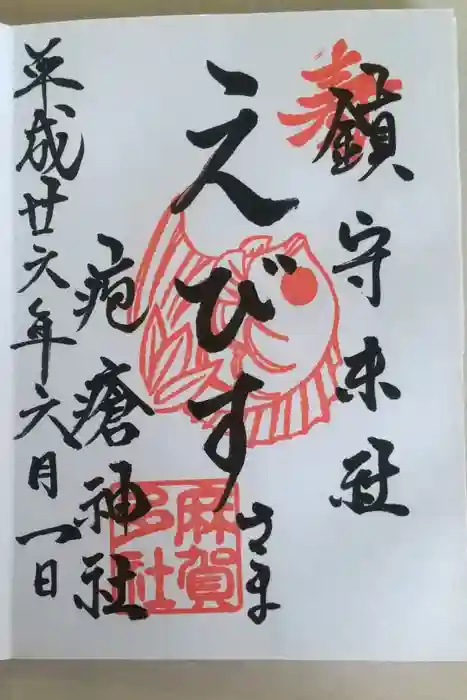 鎮守末社
えびす
さま
疱瘡神社
平成廿六年六月一日
麻賀
多社